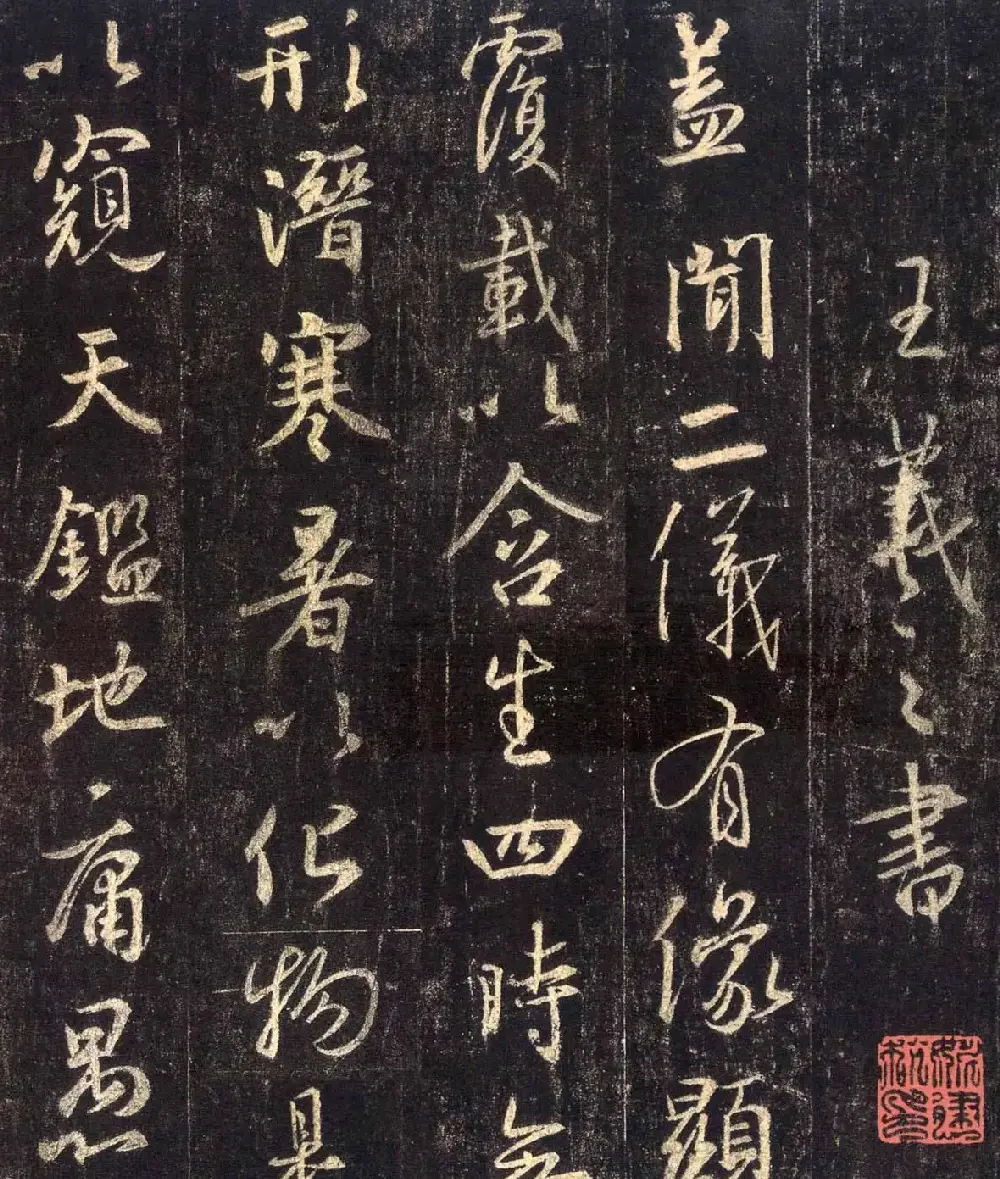 王羲之書
盖聞二儀有像顯
覆載以含生四時無
形潛寒暑以化物是
以窺天鑑地庸愚